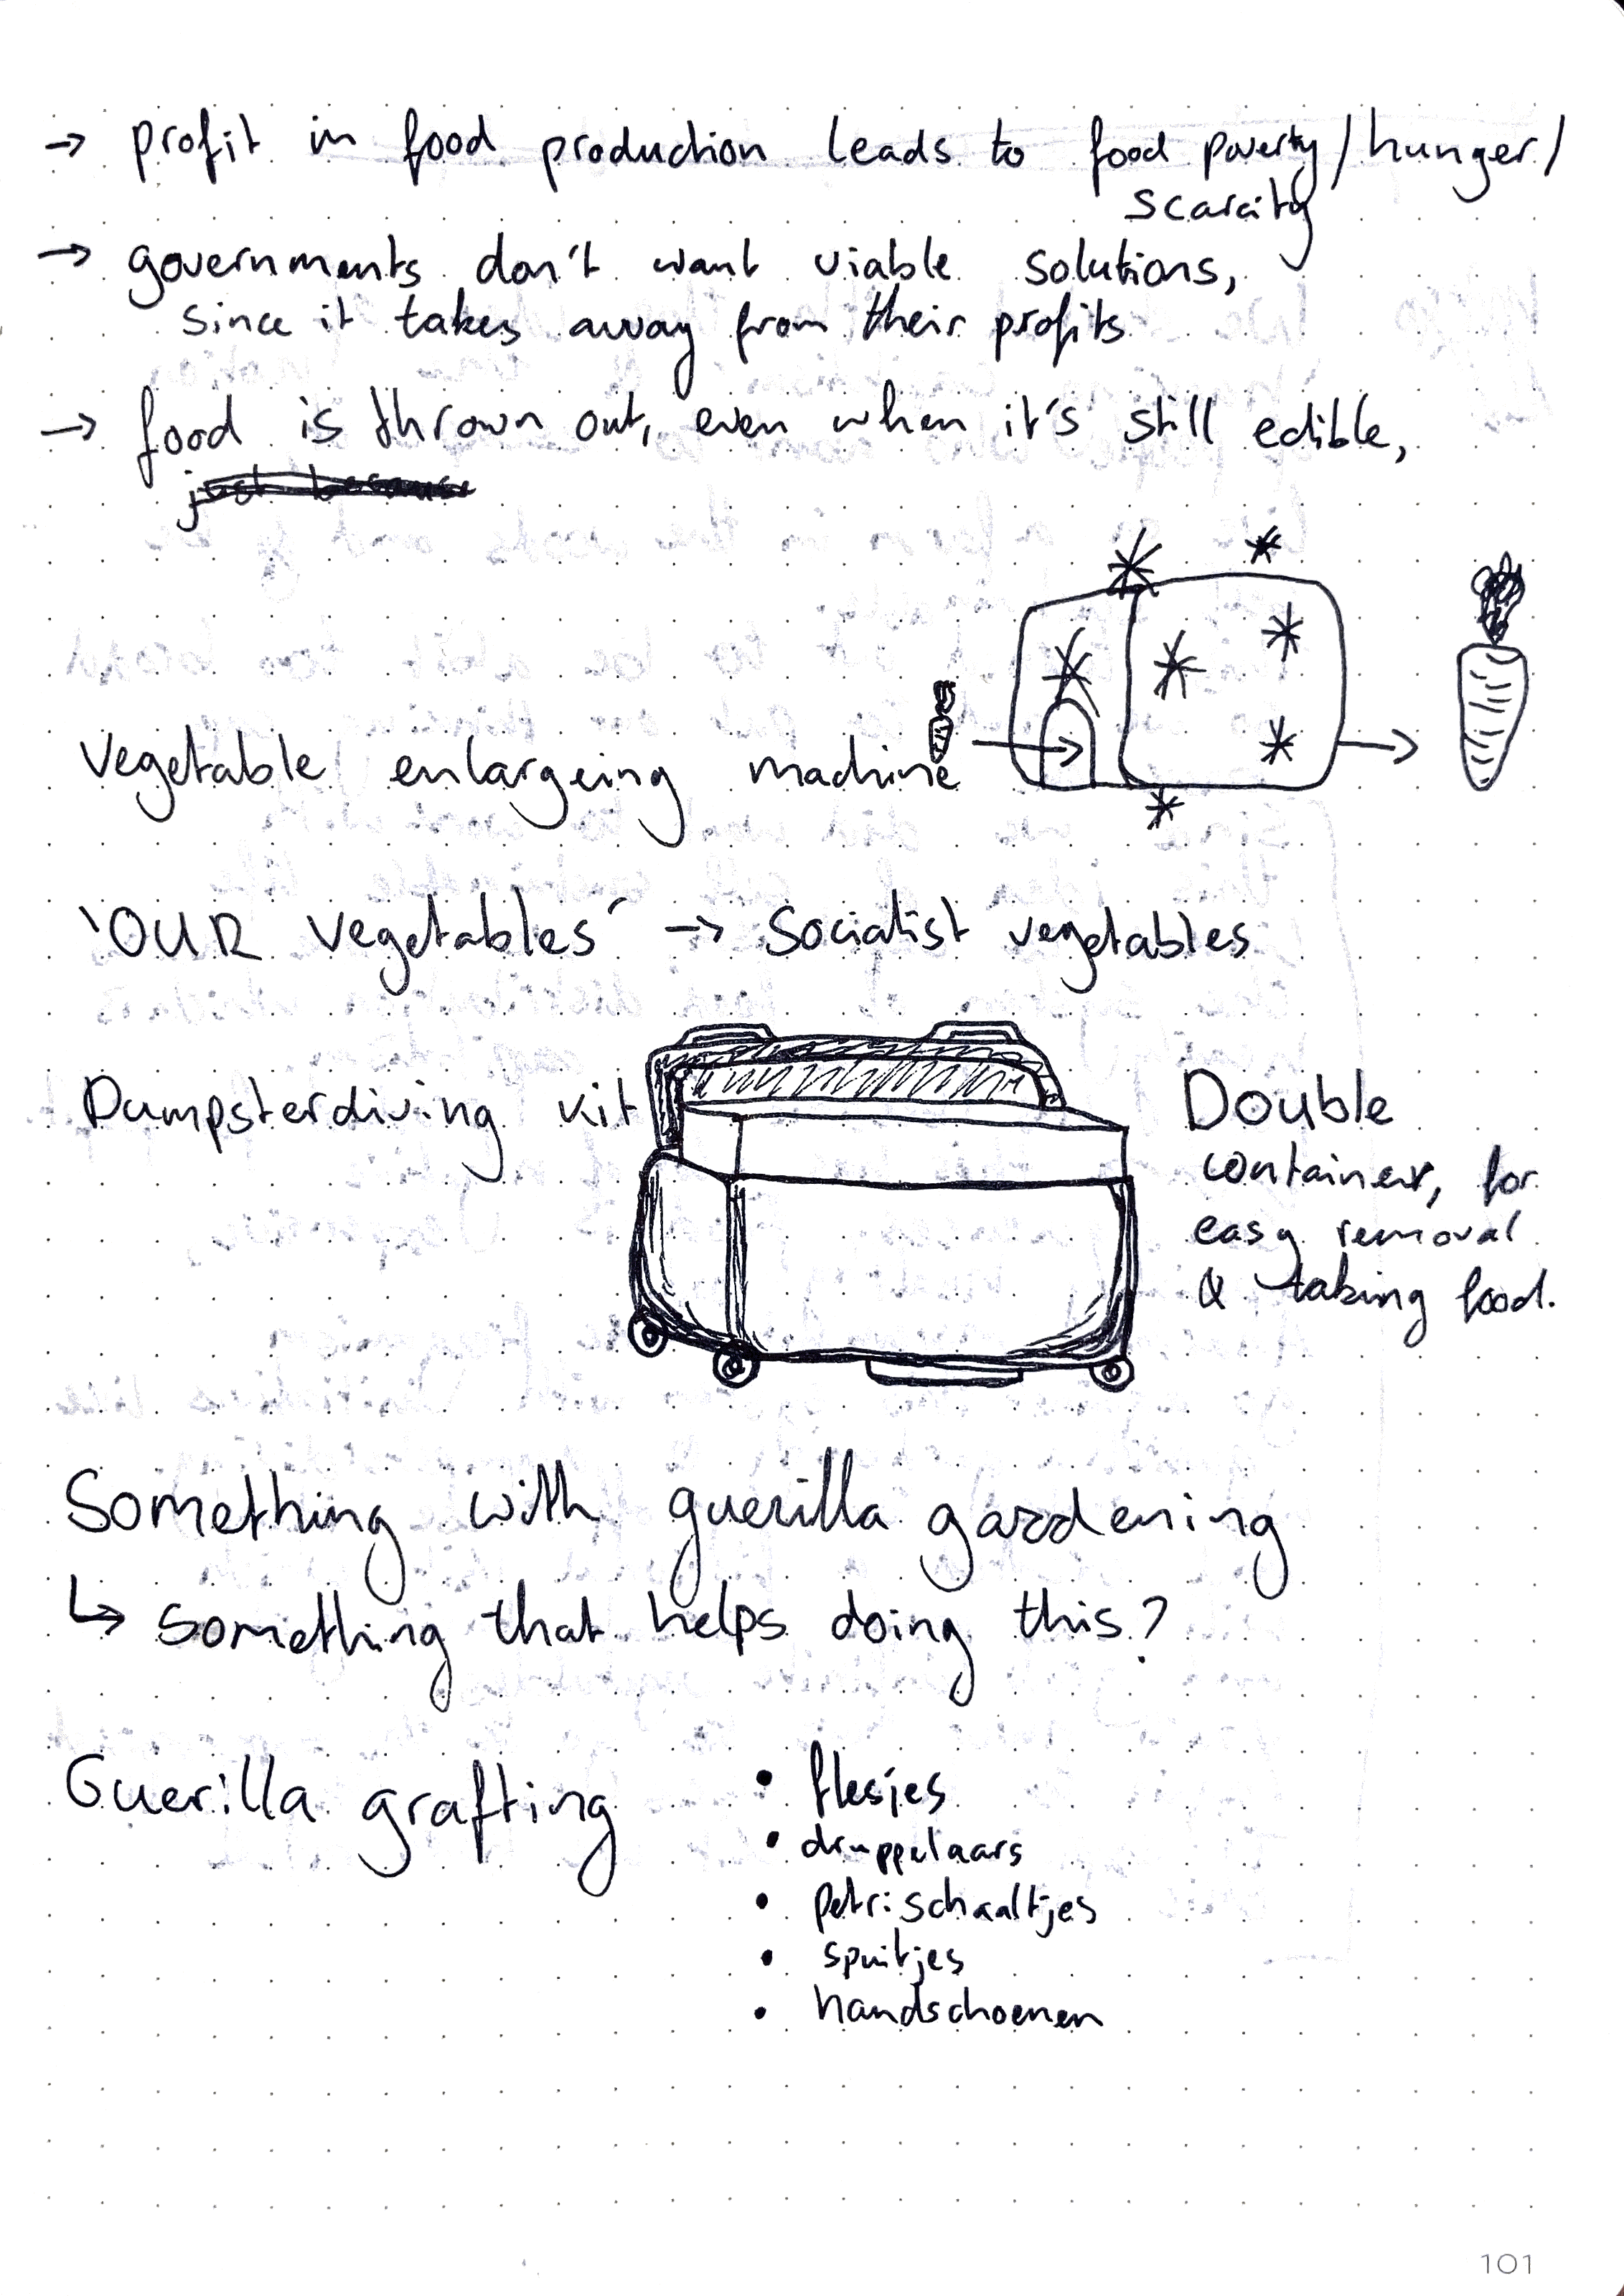 → profit in food production leads to food poverty/hunger/
scarcity
→ governments don't want viable solutions,
since it takes away from their profits
→ food is thrown out, even when it's still edible,
just because
Vegetable enlargeing machine
'OUR vegetables' → Socialist vegetables
Dumpsterdiving kit
Double
container, for
easy removal
& taking food.
Something with guerilla gardening
↳ something that helps doing this?
Guerilla grafting
• flesjes
• druppelaars
• petrischaaltjes
• spuitjes
• handschoenen
101